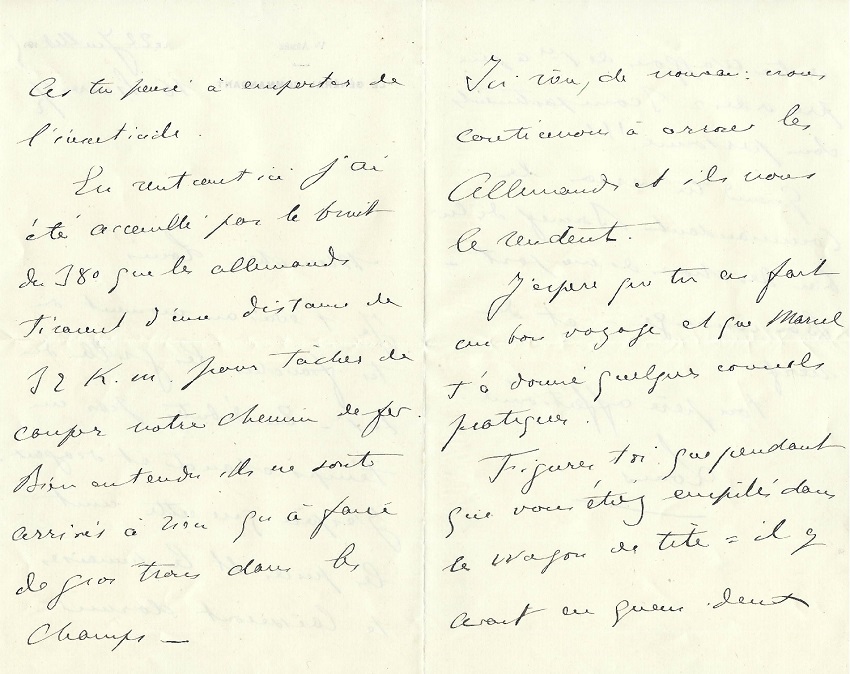 As tu pensé à emporter de
l'insecticide.
En rentrant ici j'ai
été accueilli par le bruit
du 380 que les allemands
tiraient d'une distance de
32 K.m. pour tâcher de
couper notre chemin de fer.
Bien entendu ils ne sont
arrivés à rien qu'à faire
de gros trous dans les
champs —
Ici rien, de nouveau : nous
continuons à arroser les
Allemands et ils nous
le rendent.
J'espère que tu as fait
un bon voyage et que Marcel
t'a donné quelques conseils
pratiques.
Figures toi que pendant
que vous étiez empilés dans
le wagon de tête = il y
avait en queue deux